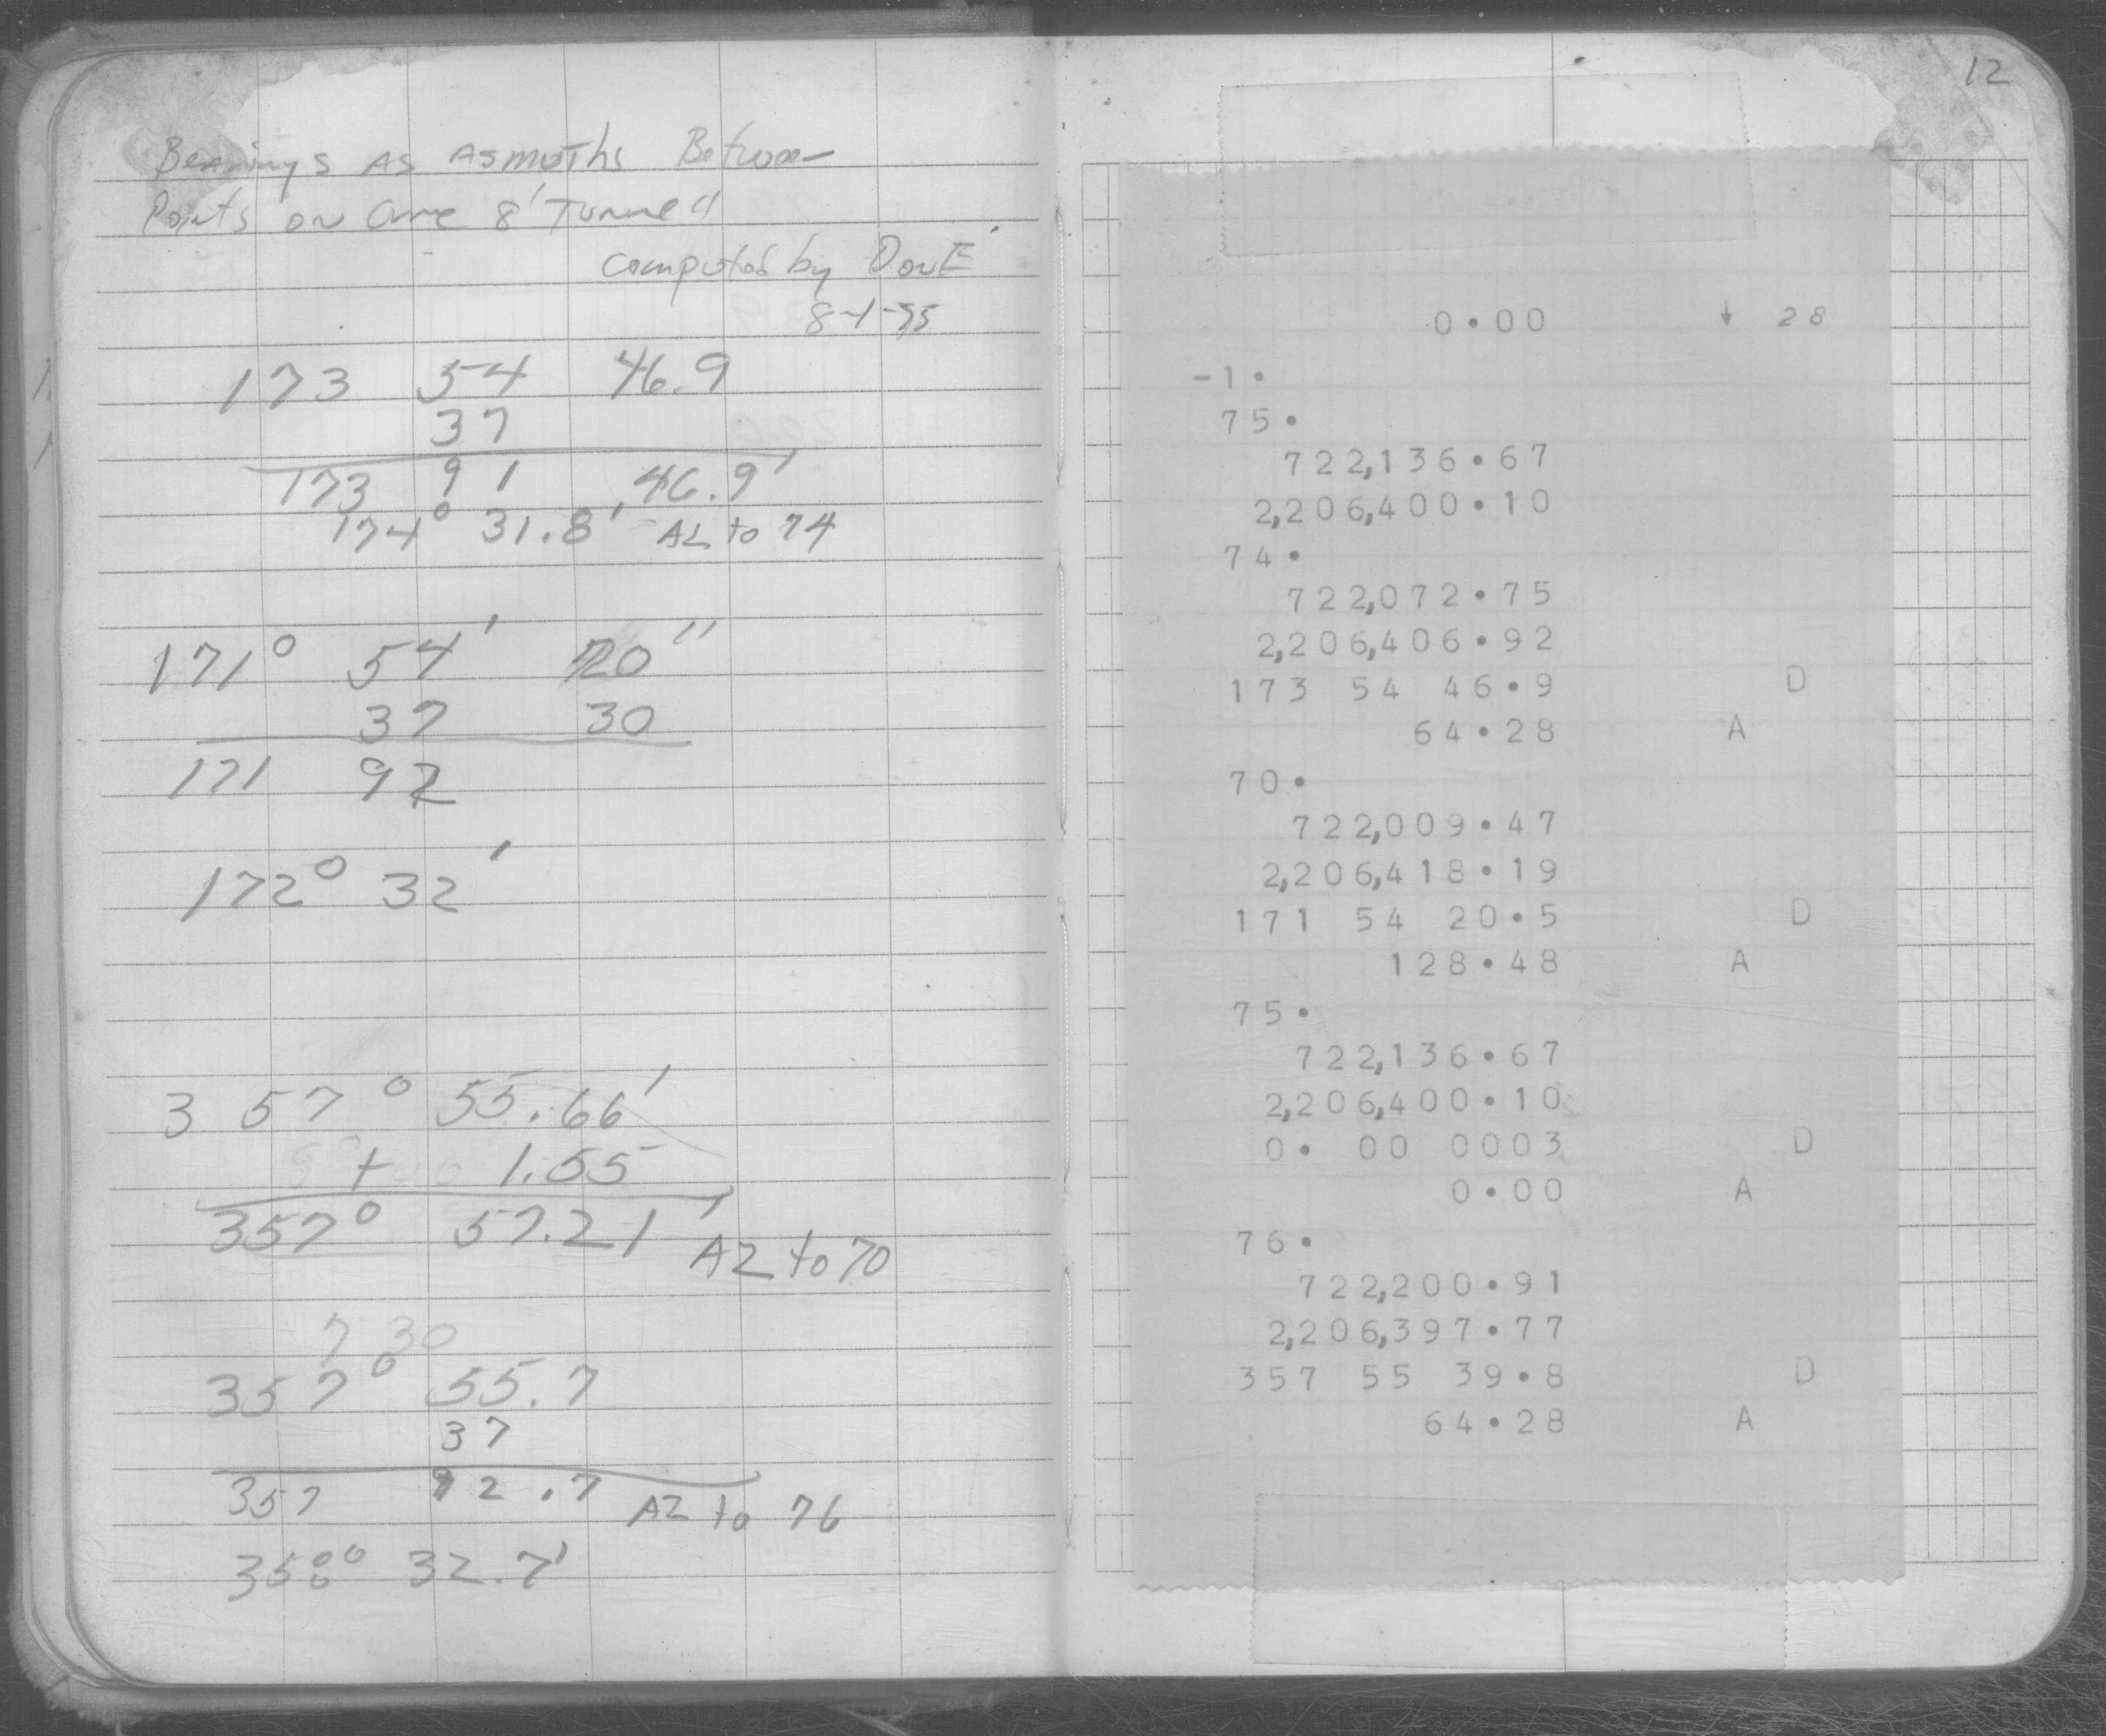 Bearings As Asmuths Between
Points on Curve 8' Tunnel
computed by Don E
8-1-75
173 54 46.9
37
173 91 46.9'
174° 31.8' AZ to 74
171° 54' 20"
37 30
171 92
172° 32'
357° 55.66'
+ 1.55
357° 57.21' AZ to 70
7 30
357° 55.7
37
357 92.7 AZ to 76
358° 32.7'
12
0.00 ↓ 28
-1.
75.
722,136.67
2,206,400.10
74.
722,072.75
2,206,406.92
173 54 46.9 D
64.28 A
70.
722,009.47
2,206,418.19
171 54 20.5 D
128.48 A
75.
722,136.67
2,206,400.10
0. 00 0003 D
0.00 A
76.
722,200.91
2,206,397.77
357 55 39.8 D
64.28 A